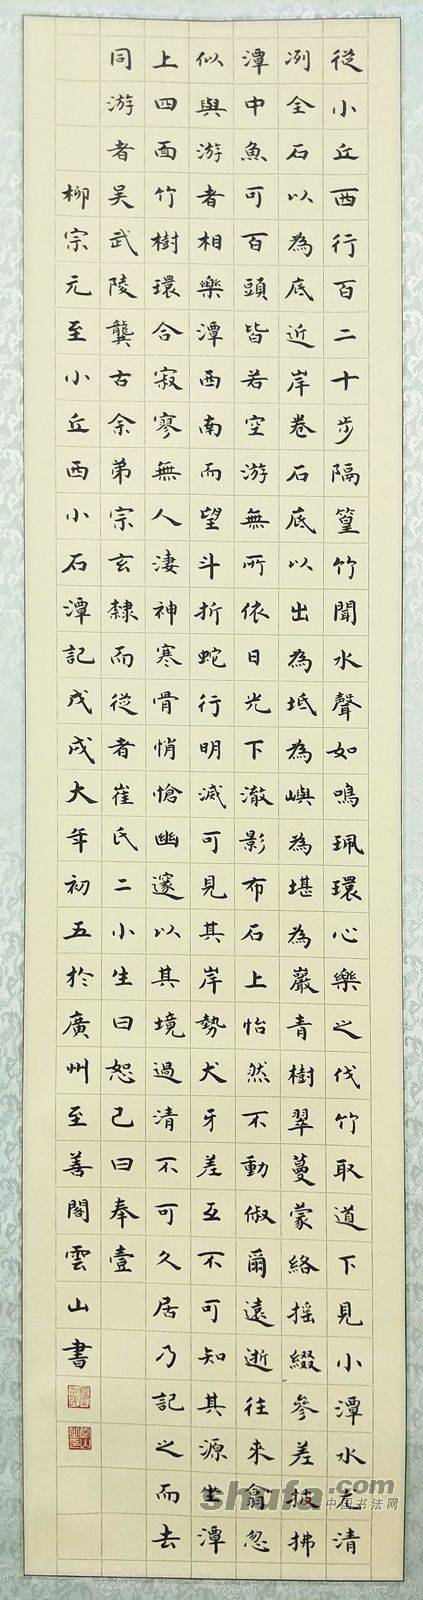 從小丘西行百二十步隔篁竹聞水聲如鳴珮環心樂之伐竹取道下見小潭水尤清
冽全石以為底近岸卷石底以出為坻為嶼為堪為巖青樹翠蔓蒙絡搖綴參差披拂
潭中魚可百頭皆若空游無所依日光下澈影布石上怡然不動俶爾遠逝往來翕忽
似與游者相樂潭西南而望斗折蛇行明滅可見其岸勢犬牙差互不可知其源坐潭
上四面竹樹環合寂寥無人淒神寒骨悄愴幽邃以其境過清不可久居乃記之而去
同游者吴武陵龔古余弟宗玄隸而從者崔氏二小生曰恕己曰奉壹
柳宗元至小丘西小石潭記戊戌大年初五於廣州至善閣雲山書
shufa.com
中国书法网